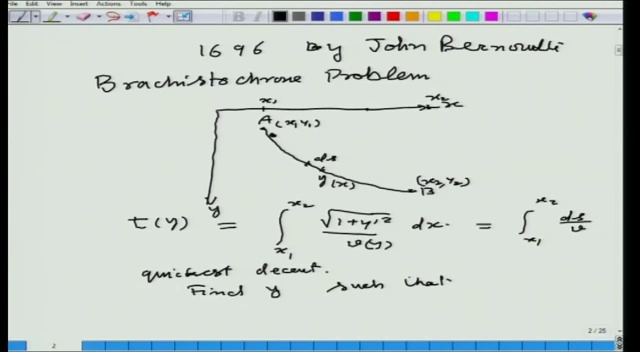 File Edit View Insert Actions Tools Help
1696 By John Bernoulli
Brachistochrone Problem
x₁ x₂ x
A (x₁, y₁)
ds
y(x)
(x₂, y₂)
B
y
t(y) = ∫_{x₁}^{x₂} √(1+y'²) / v(y) dx. = ∫_{x₁}^{x₂} ds/v
quickest decent.
Find y such that
2 / 25
2